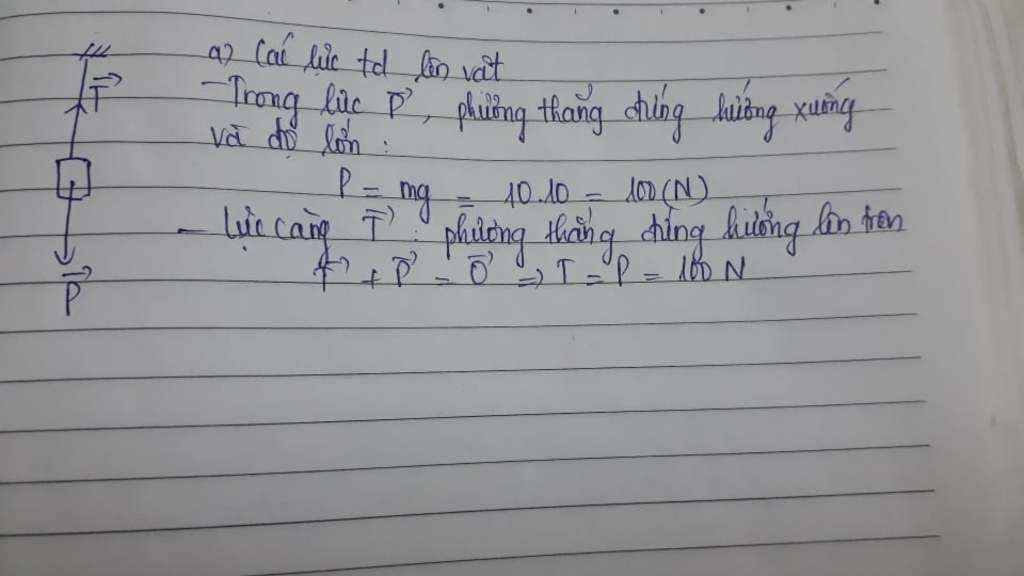 a) Các lực td lên vật
T⃗
- Trong lực P⃗, phương thẳng đứng hướng xuống
và độ lớn :
P = mg = 10.10 = 100 (N)
- lực căng T⃗ : phương thẳng đứng hướng lên trên
T⃗ + P⃗ = 0⃗ => T = P = 100 N
P⃗